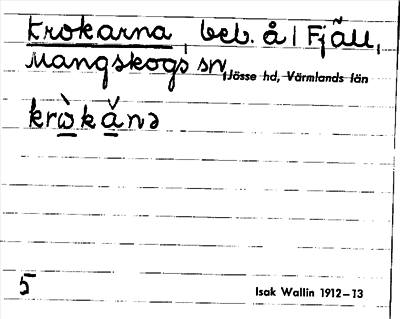 Krokarna beb. å 1 Fjäll,
Mangskogs sn, Jösse hd, Värmlands län
krò̱kǎ̱nə
5
Isak Wallin 1912–13